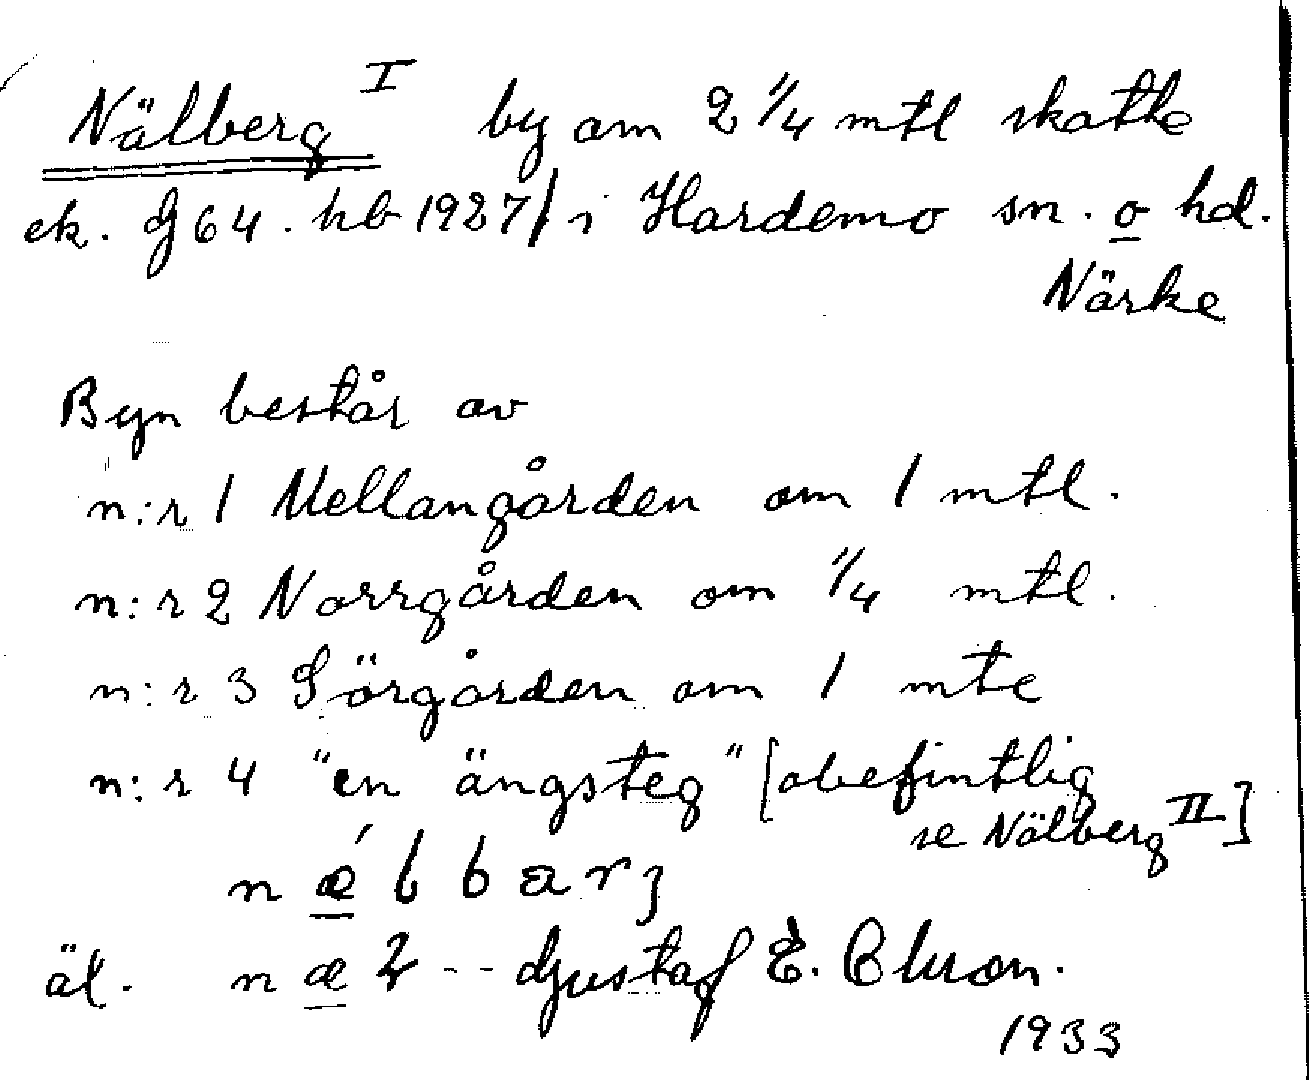 Nälberg I by om 2 1/4 mtl skatte
ek. G 64. hb 1927/ i Hardemo sn. o hd.
Närke
Byn består av
n:r 1 Mellangården om 1 mtl.
n:r 2 Norrgården om 1/4 mtl.
n:r 3 Sörgården om 1 mtl
n:r 4 "en ängsteg" [obefintlig
se Nälberg II]
äl. Gustaf E.
1933